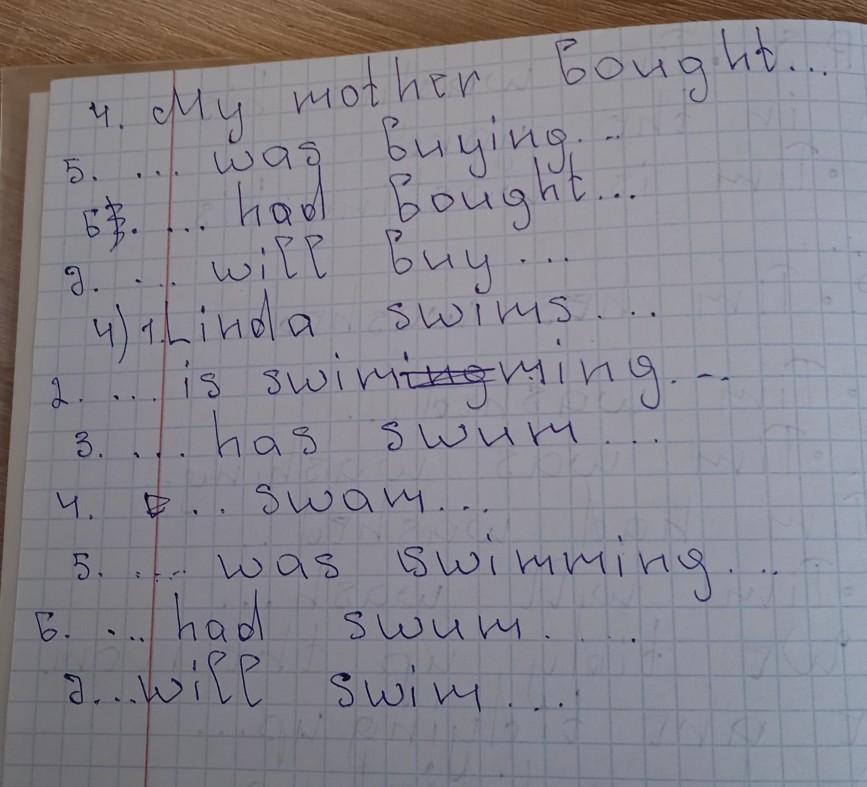 4. My mother bought...
5. ... was buying...
6. ... had bought...
7. ... will buy...
4) 1. Linda swims...
2. ... is swimming...
3. ... has swum...
4. ... swam...
5. ... was swimming...
6. ... had swum....
7...will swim....